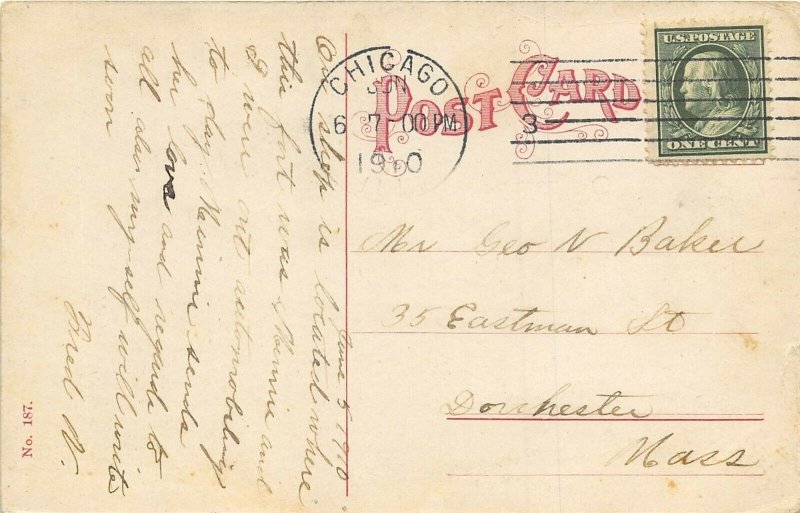 POST CARD
CHICAGO
JUN
6 7-00PM
1910
3
U.S. POSTAGE
ONE CENT
June 5 1910
Our shop is located where
this fort was Minnie and
I were out automobiling
to day, Minnie sends
her love and regards to
all also my-self will write
soon
Fred W.
Mr Geo N Baker
35 Eastman St
Dorchester
Mass
No. 187.